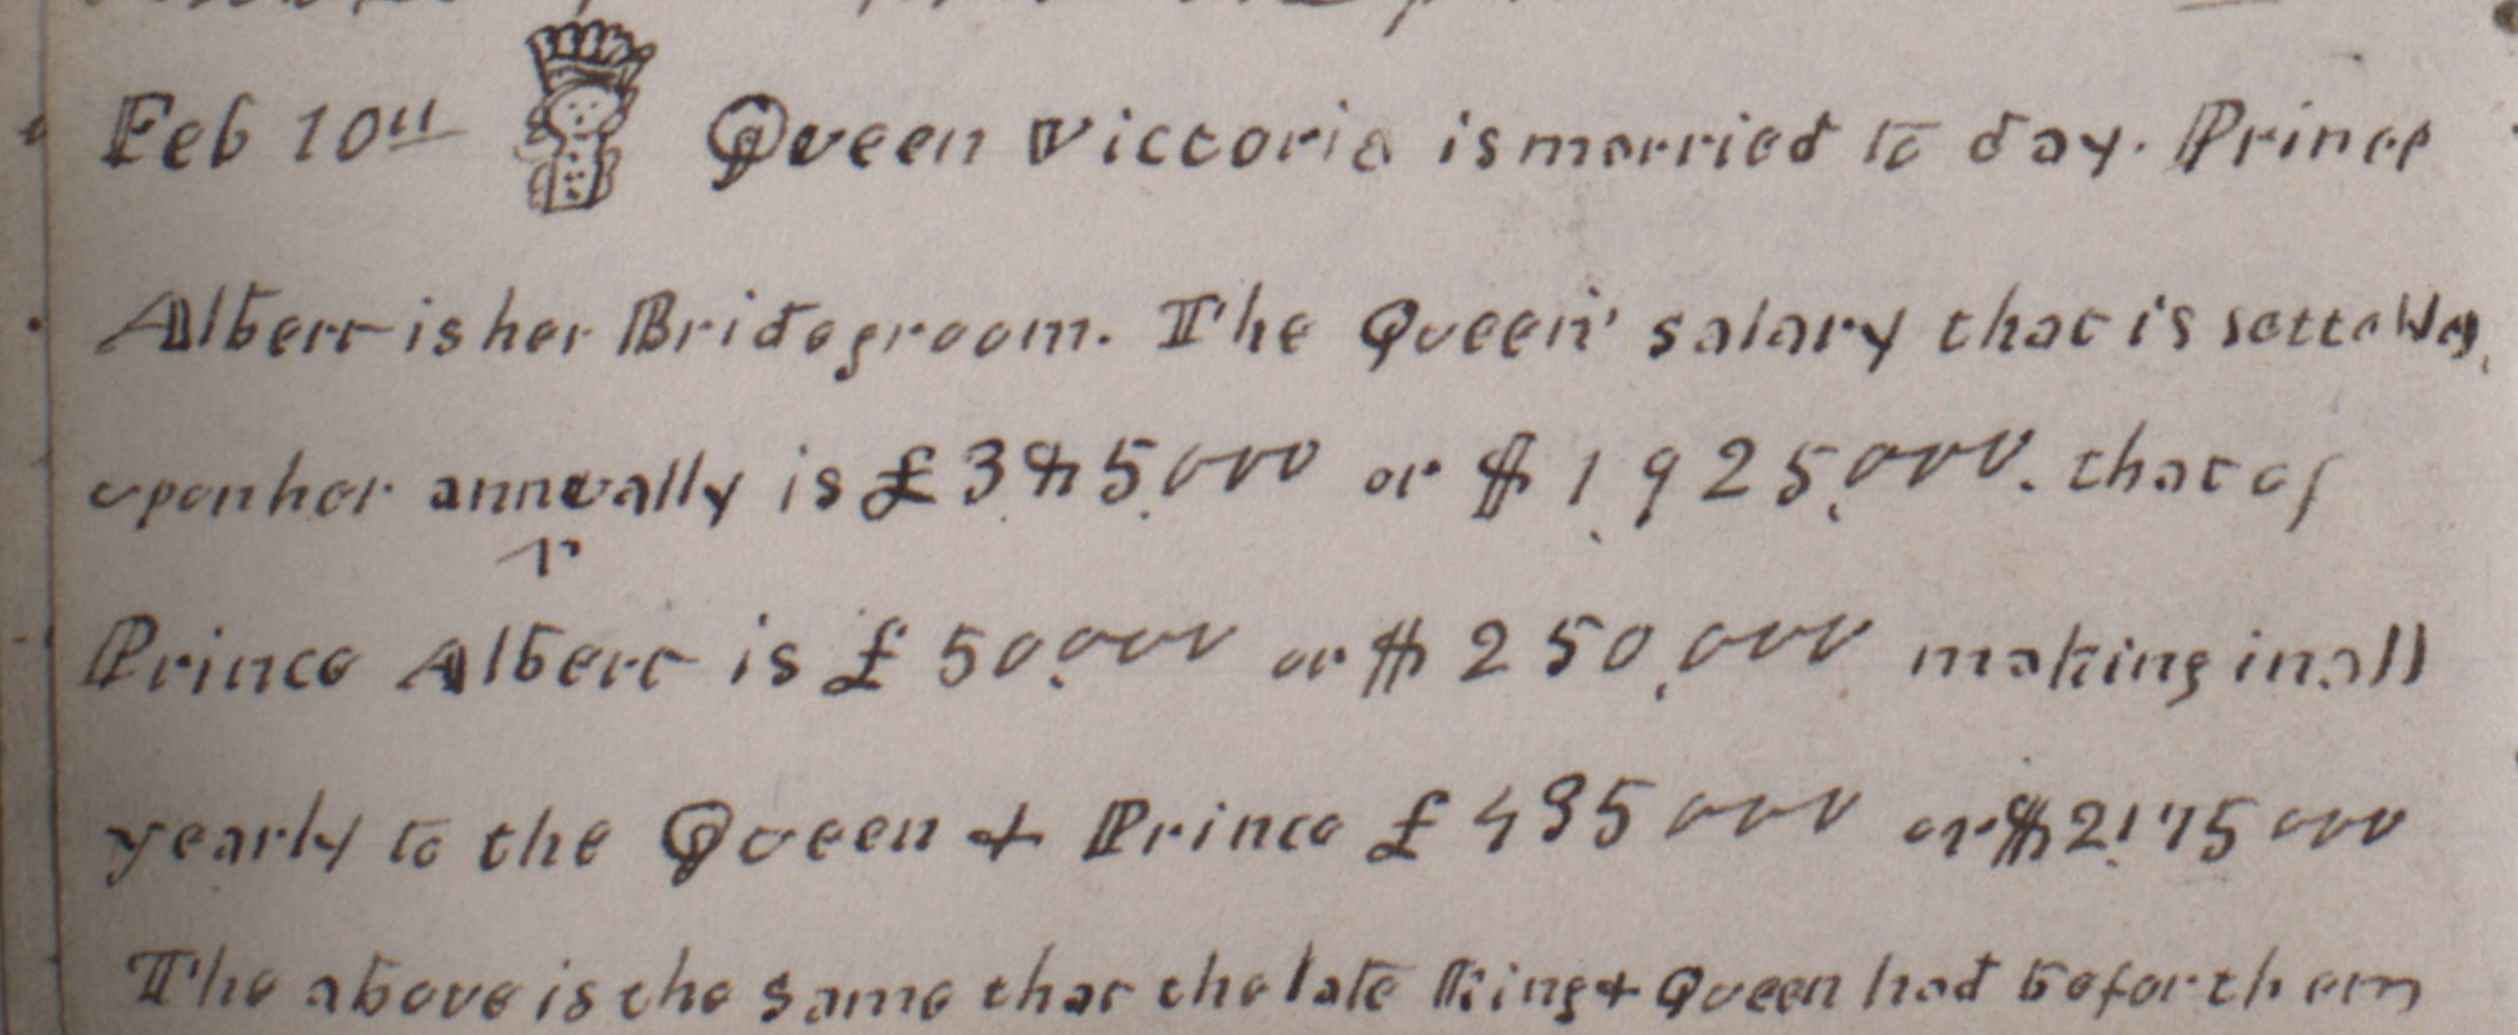 Feb 10th Queen Victoria is married to day. Prince
Albert is her Bridegroom. The Queen' salary that is
upon her annually is £385,000 or $1,925,000. that of
Prince Albert is £50,000 or $250,000 making in all
yearly to the Queen & Prince £435000 or $2,175000
The above is the same that the late King & Queen had befor them